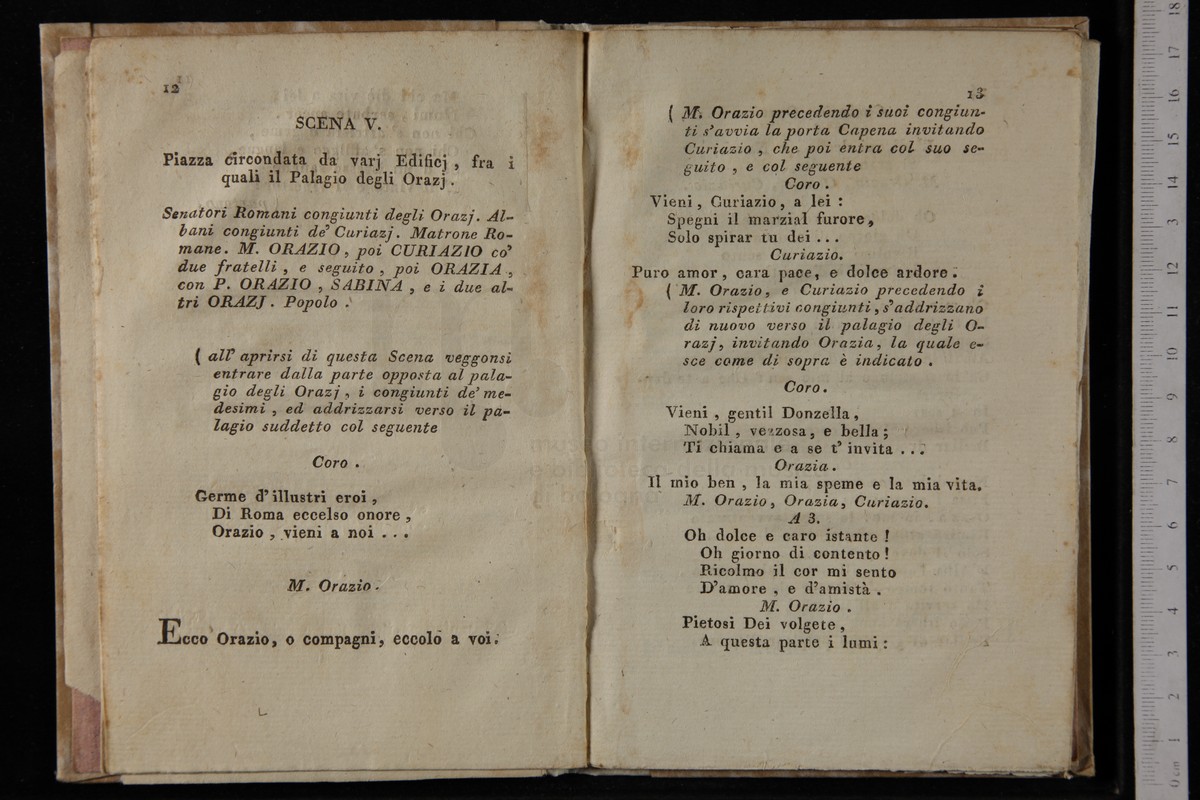 12
SCENA V.
Piazza circondata da varj Edificj , fra i
quali il Palagio degli Orazj .
Senatori Romani congiunti degli Orazj. Al-
bani congiunti de' Curiazj. Matrone Ro-
mane. M. ORAZIO , poi CURIAZIO co'
due fratelli , e seguito , poi ORAZIA ,
con P. ORAZIO , SABINA , e i due al-
tri ORAZJ . Popolo .
( all' aprirsi di questa Scena veggonsi
entrare dalla parte opposta al pala-
gio degli Orazj , i congiunti de' me-
desimi , ed addrizzarsi verso il pa-
lagio suddetto col seguente
Coro .
Germe d' illustri eroi ,
Di Roma eccelso onore ,
Orazio , vieni a noi . . .
M. Orazio .
Ecco Orazio, o compagni, eccolo a voi.
13
( M. Orazio precedendo i suoi congiun-
ti s'avvia la porta Capena invitando
Curiazio , che poi entra col suo se-
guito , e col seguente
Coro .
Vieni , Curiazio , a lei :
Spegni il marzial furore,
Solo spirar tu dei . . .
Curiazio.
Puro amor , cara pace, e dolce ardore .
( M. Orazio, e Curiazio precedendo i
loro rispettivi congiunti , s'addrizzano
di nuovo verso il palagio degli O-
razj, invitando Orazia, la quale e-
sce come di sopra è indicato .
Coro.
Vieni , gentil Donzella ,
Nobil , vezzosa, e bella ;
Ti chiama e a se t' invita . . .
Orazia .
Il mio ben , la mia speme e la mia vita.
M. Orazio, Orazia, Curiazio.
A 3.
Oh dolce e caro istante !
Oh giorno di contento !
Ricolmo il cor mi sento
D'amore , e d'amistà .
M. Orazio .
Pietosi Dei volgete ,
A questa parte i lumi :